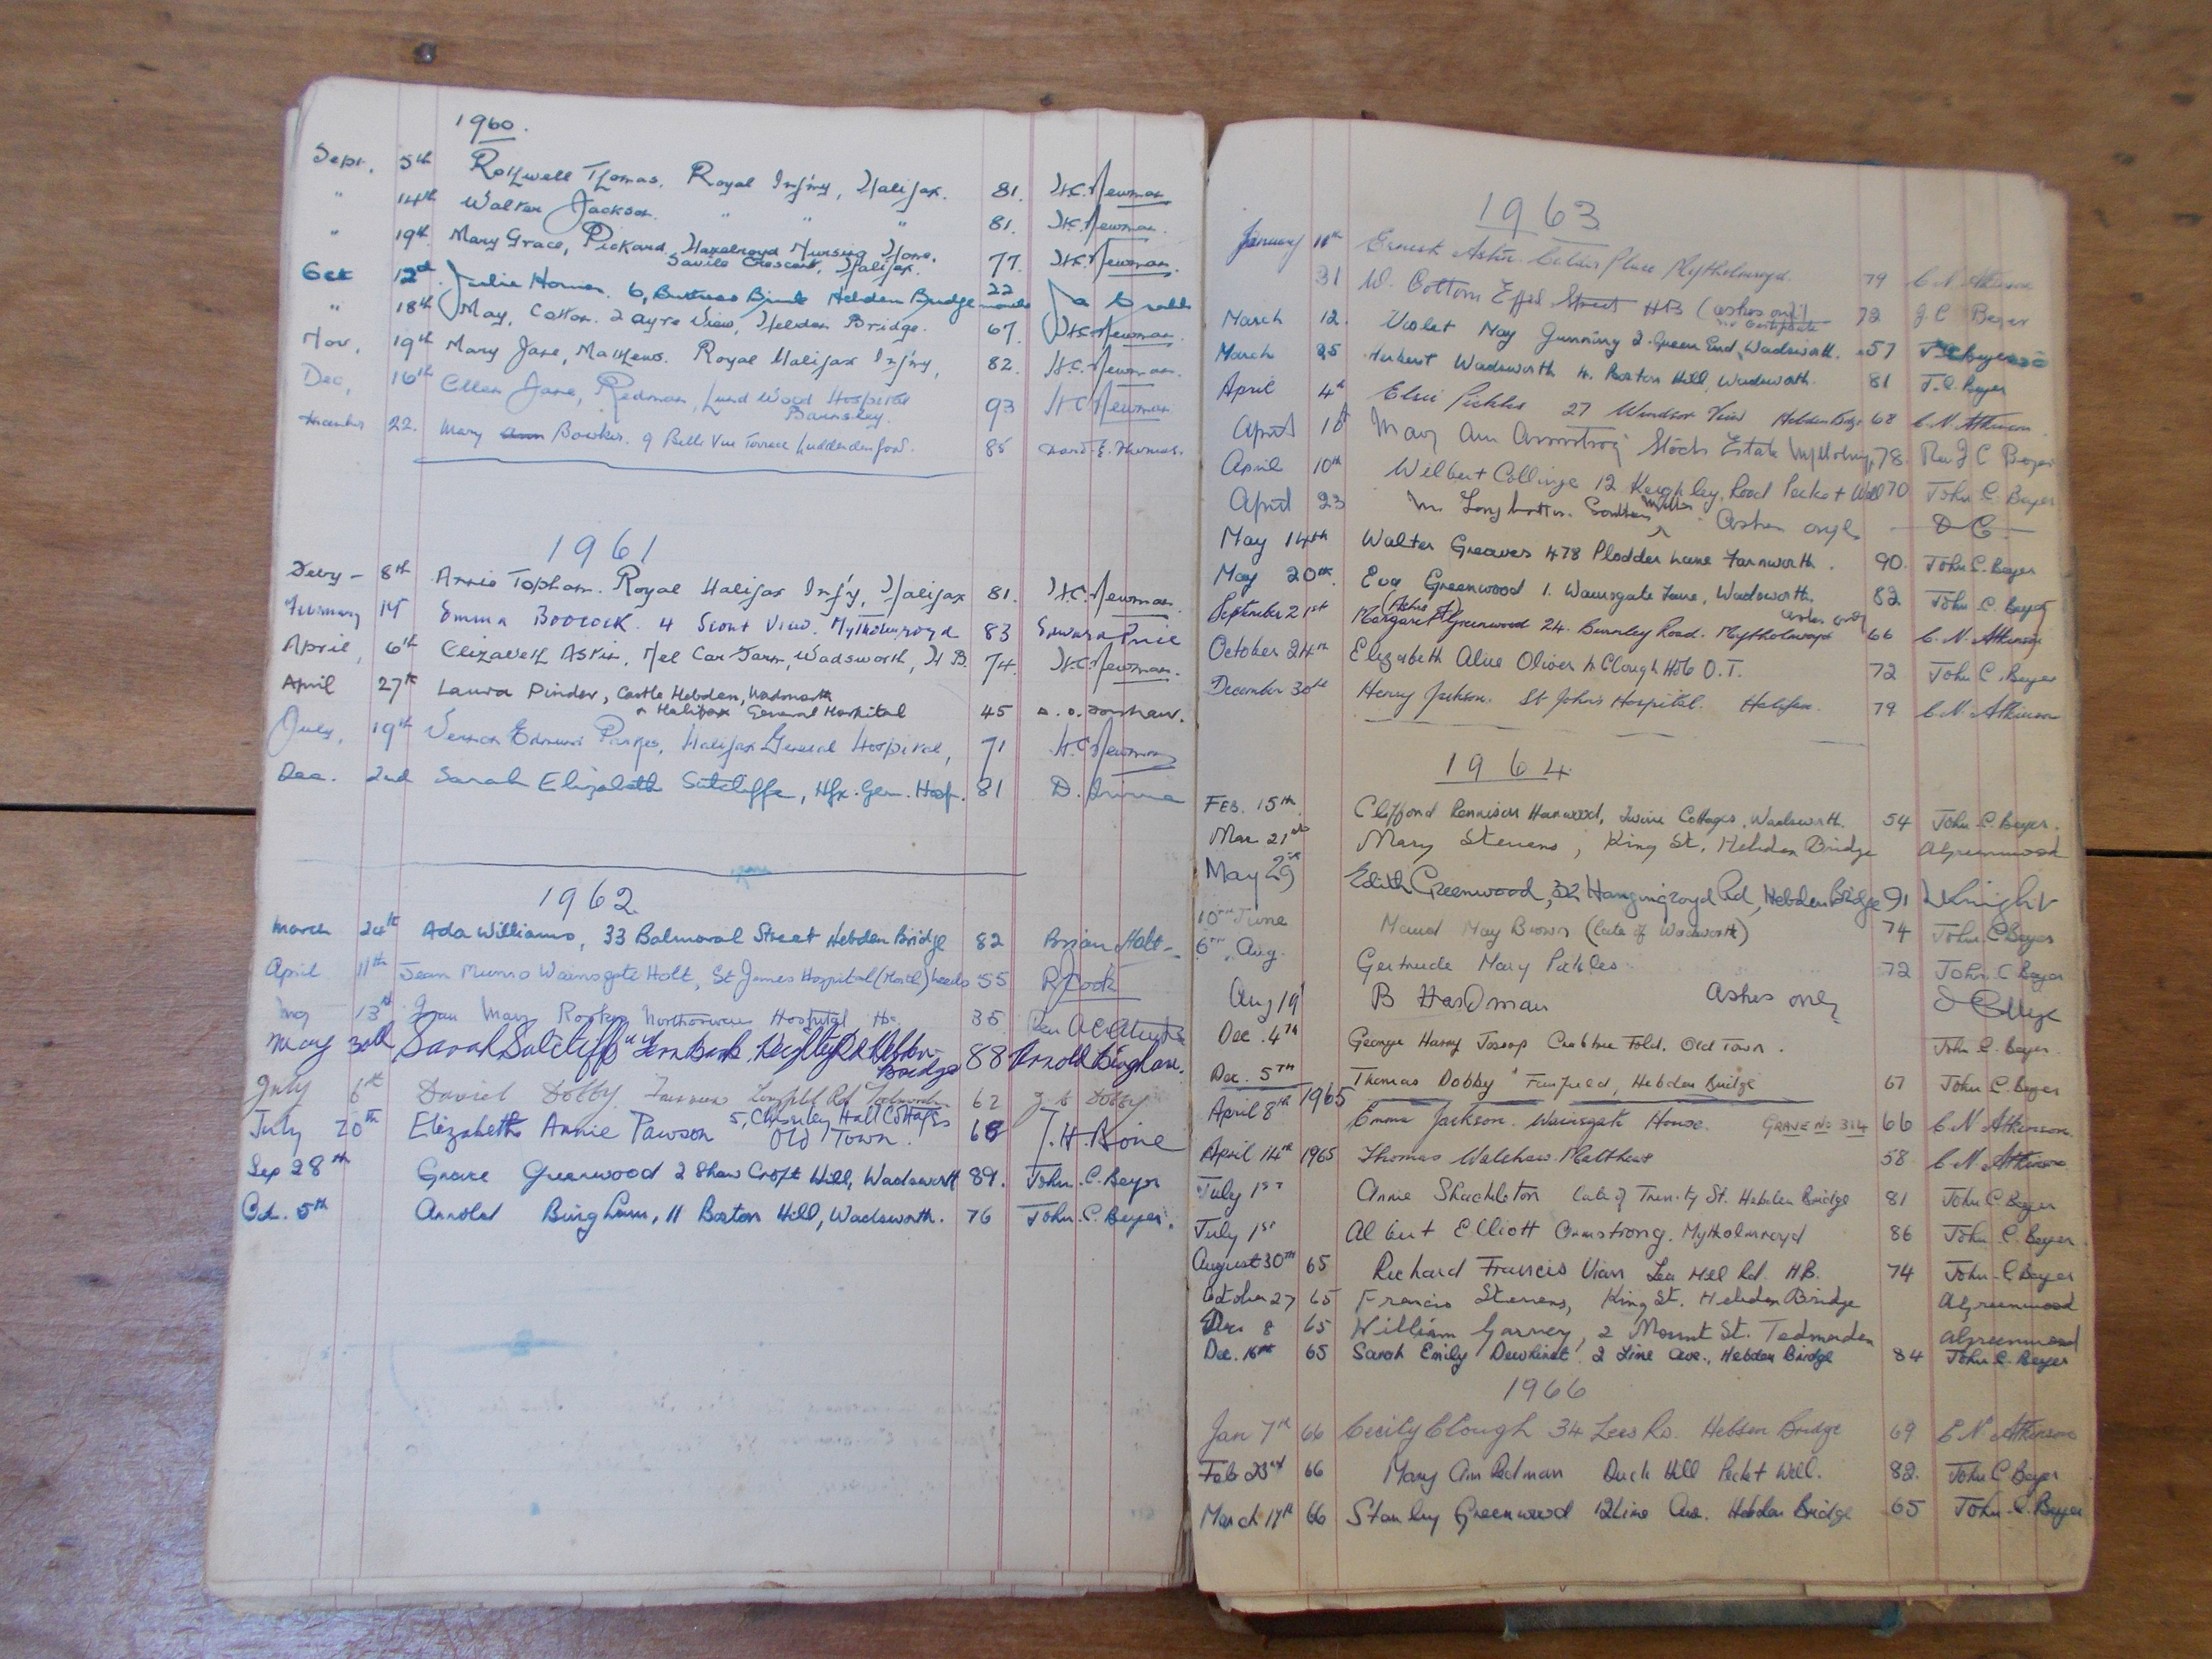 1960.
Sept. 5th Rothwell Thomas, Royal Inf'my, Halifax. 81. H.C. Newman
" 14th Walker Jackson. " " " 81. H.C. Newman.
" 19th Mary Grace, Pickard, Hazelroyd Nursing Home, 77. H.C. Newman.
Savile Crescent, Halifax.
Oct 12th Julie Horner. 6, Buttress Brink Hebden Bridge 22 months
" 18th May, Cotton. 2 Ayre View, Hebden Bridge. 67. H.C. Newman.
Nov, 19th Mary Jane, Mathews. Royal Halifax Inf'my, 82. H.C. Newman.
Dec, 16th Ellen Jane, Redman, Lund Wood Hospital 93 H.C. Newman
Barnsley.
December 22. Mary Ann Bowker. 9 Belle Vue Terrace Luddendenfoot. 85 David E. Thomas.
1961
8th Annie Topham. Royal Halifax Inf'y, Halifax 81. H.C. Newman.
February 14 Emma Boocock. 4 Scout View. Mytholmroyd 83 Edward Price
April, 6th Elizabeth Astin, Wadsworth, H.B. 74. H.C. Newman.
April 27th Laura Pinder, Castle Hebden, Wadsworth
& Halifax General Hospital 45
July, 19th Vernon Edmund Parkes, Halifax General Hospital, 71 H.C. Newman
Dec. 2nd Sarah Elizabeth Sutcliffe, Hfx. Gen. Hosp. 81 D.
1962
March 24th Ada Williams, 33 Balmoral Street Hebden Bridge 82 Brian Holt
April 11th Jean Munro Wainsgate Holt, St James Hospital (North) Leeds 55 R Cook
May 13th Jean Mary Northowram Hospital Hx. 35 Rev
May 30th Sarah Sutcliffe "Fern Bank, Keighley Rd Hebden 88 Arnold Bingham.
Bridge
July 6th David Dobby 62 Dobby
July 20th Elizabeth Annie Pawson 5, Chiserley Hall Cottages 68 T. H. Bone
Old Town.
Sep 28th Grace Greenwood 2 Shaw Croft Hill, Wadsworth 89. John. C. Beyer
Oct. 5th Arnold Bingham, 11 Boston Hill, Wadsworth. 76 John. C. Beyer.
1963
January 11th Ernest Astin. Calder Place Mytholmroyd. 79 C. N. Atkinson
31 W. Cottom Street HB (ashes only) 72 J. C Beyer
no Certificate
March 12. Violet May Gunning 2. Green End, Wadsworth. 57 J. C. Beyer
March 25 Herbert Wadsworth 4. Boston Hill, Wadsworth. 81 J. C. Beyer
April 4th Elsie Pickles 27 Windsor View Hebden Bdge 68 C. N. Atkinson
April Mary Ann Armstrong Stocks Estate 78. Rev J C Beyer
April 10th Wilbert Collinge 12 Keighley Road Pecket Well 70 John C. Beyer
April 23 Mr Longbottom. Ashes only
May 14th Walter Greaves 478 Plodder Lane Farnworth. 90. John C. Beyer
May 20th. Eva Greenwood 1. Wainsgate Lane, Wadsworth. 82 John C. Beyer
ashes only
September 21st Margaret (Ashes of) Greenwood 24. Burnley Road. Mytholmroyd 66 C. N. Atkinson
October 24th Elizabeth Alice Oliver 4 Clough Hole O.T. 72 John C. Beyer
December 30th Henry Jackson. St John's Hospital. Halifax. 79 C. N. Atkinson
1964
FEB. 15th. Clifford Rennison Harwood, Cottages, Wadsworth. 54 John C. Beyer.
Mar 21st Mary Stevens, King St, Hebden Bridge A Greenwood
May 29 Edith Greenwood, 32 Hangingroyd Rd, Hebden Bridge 91 Knight
10th June Maud May Brown (late of Wadsworth) 74 John. C Beyer
6th Aug. Gertrude Mary Pickles. 72 John. C Beyer
Aug 19 B Hardman Ashes only
Dec. 4TH George Harry Jessop Crabtree Fold, Old Town. John C. Beyer.
Dec. 5TH Thomas Dobby "Fairfield, Hebden Bridge 67 John C. Beyer
April 8th 1965 Emma Jackson. Wainsgate House. GRAVE No 314 66 C. N Atkinson.
April 14th 1965 Thomas Walshaw. Matthews 58. C. N. Atkinson
July 1st Annie Shackleton late of Trinity St. Hebden Bridge 81 John C Beyer
July 1st Albert Elliott Armstrong. Mytholmroyd 86 John. C. Beyer
August 30TH 65 Richard Francis Vian Lee Mill Rd. H.B. 74 John. C Beyer
October 27 65 Francis Stevens, King St. Hebden Bridge A Greenwood
Dec 8 65 William Garvey, 2 Mount St. Todmorden A Greenwood
Dec. 16th 65 Sarah Emily Dewhirst. 2 Lime Ave., Hebden Bridge 84 John C. Beyer
1966
Jan 7th 66 Cecily Clough 34 Lees Rd. Hebden Bridge 69 C N Atkinson
Feb 23rd 66 Mary Ann Redman Duck Hill Pecket Well. 82. John C Beyer
March 17th 66 Stanley Greenwood 12 Lime Ave. Hebden Bridge 65 John. C. Beyer